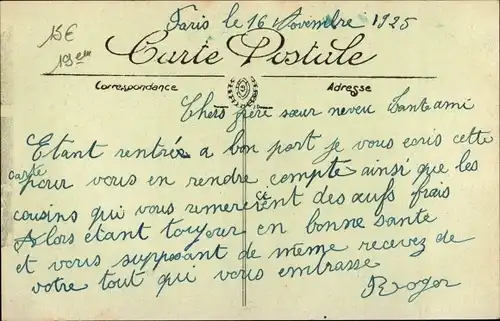 Paris le 16 Novembre 1925
15€
19em
Carte Postale
Correspondance
Adresse
Chers frère sœur neveu
Etant rentrés a bon port je vous ecris cette
carte
pour vous en rendre compte ainsi que les
cousins qui vous remercient des œufs frais
Alors etant toujour en bonne santé
et vous supposant de même recevez de
votre tout qui vous embrasse
Roger